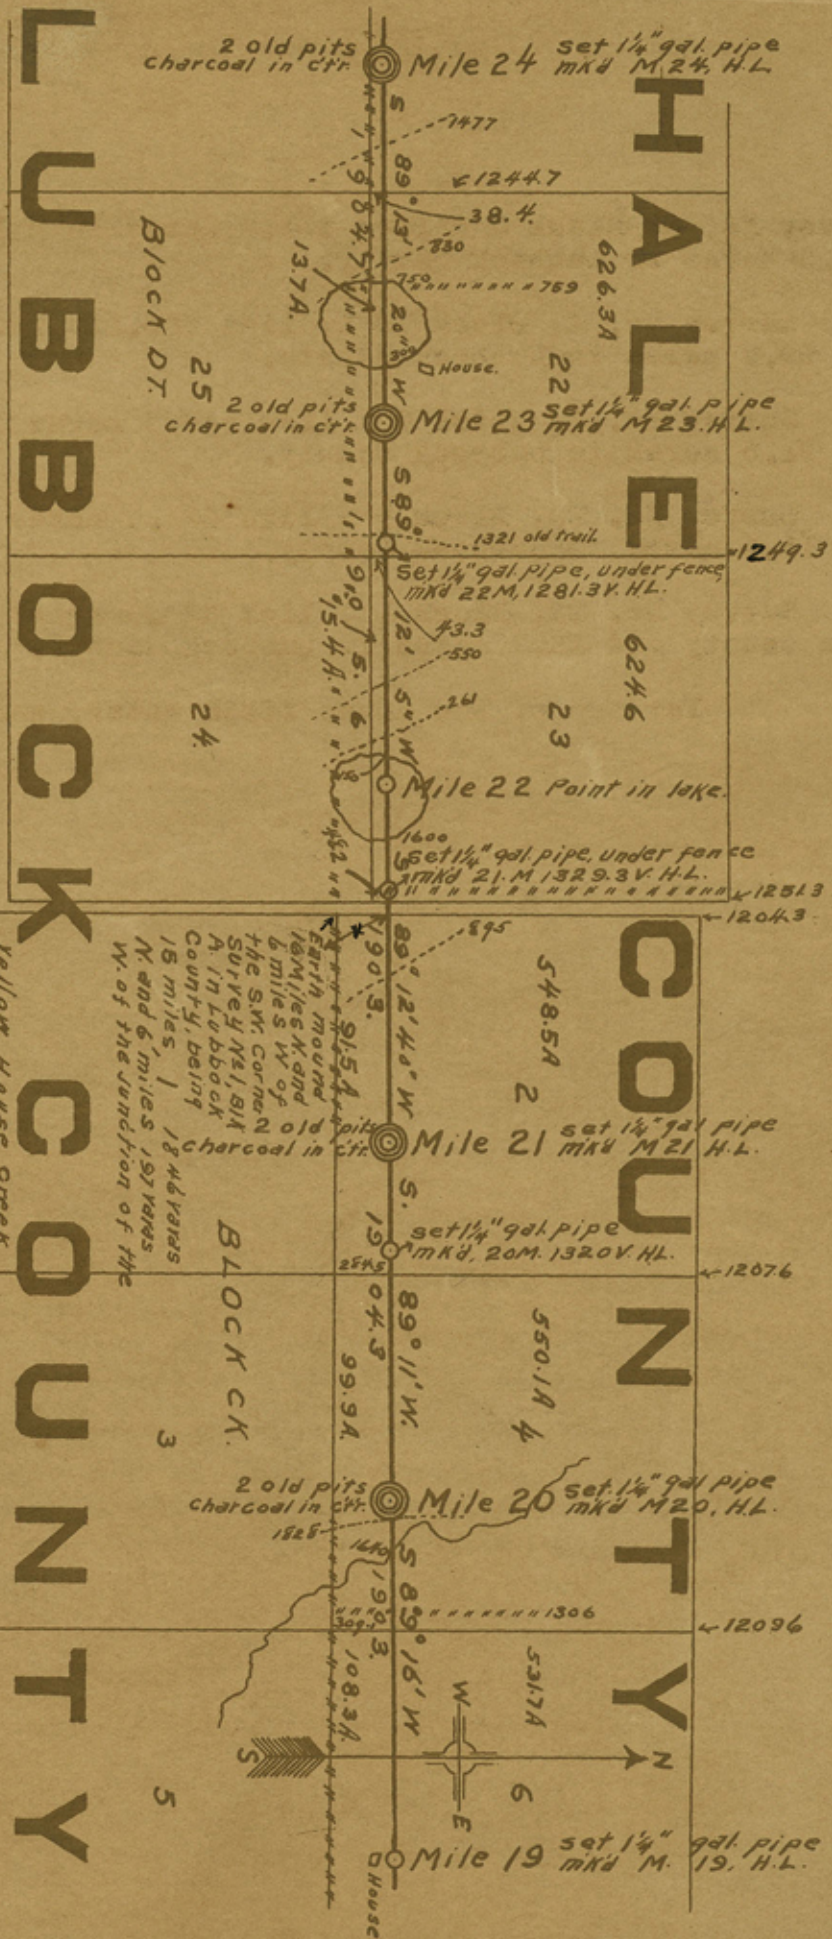 HALE COUNTY
LUBBOCK COUNTY
2 old pits
charcoal in c'tr.
Mile 24
set 1¼" gal. pipe
mk'd M 24, H.L.
1477
S 89° 13' 20" W
1244.7
38.4.
830
750
759
13.7 A.
626.3A
22
House.
Block DT.
25
2 old pits
charcoal in c'tr.
Mile 23
set 1¼" gal. pipe
mk'd M 23. H.L.
1321 old trail.
1249.3
set 1¼" gal. pipe, under fence
mkd 22M, 1281.3V. HL.
S 89° 12' 5" W
43.3
550
261
15.4 A.
624.6
23
24
Mile 22 Point in lake.
1600
set 1¼" gal. pipe, under fence
mkd 21. M 1329.3 V. H.L.
1251.3
1204.3
895
S 89° 12' 40" W
1903.
91.5 A
548.5A
2
Earth mound
16 Miles N. and
6 miles W of
the S.W. Corner
Survey No 1, Blk
A. in Lubbock
County, being
15 miles 1846 varas
N. and 6 miles 197 varas
W. of the junction of the
Yellow House Creek
2 old pits
charcoal in c'tr.
Mile 21
set 1¼" gal pipe
mkd M 21 H.L.
set 1¼" gal. pipe
mk'd, 20M. 1320V. HL.
284.5
1207.6
S. 89° 11' W.
1904.3
99.9A.
550.1A
4
BLOCK CK.
3
2 old pits
charcoal in c'tr.
Mile 20
set 1¼" gal pipe
mkd M20, H.L.
1828
1640
1306
1209.6
S 89° 16' W
1903.
108.3A.
531.7A
6
5
W
N
E
S
Mile 19
set 1¼" gal. pipe
mkd M. 19, H.L.
House